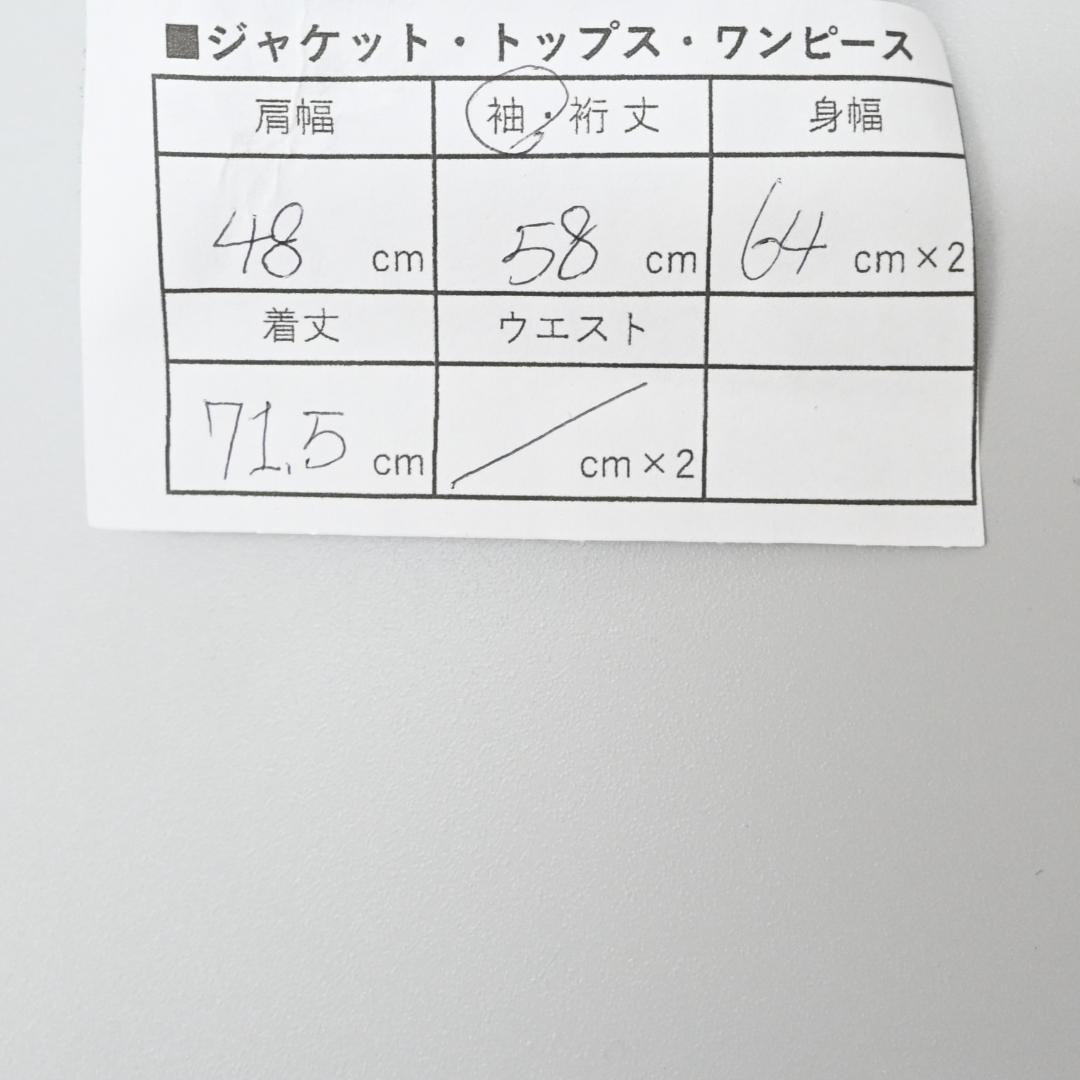 ■ジャケット・トップス・ワンピース
肩幅 袖・裄丈 身幅
48 cm 58 cm 64 cm×2
着丈 ウエスト
71.5 cm cm×2